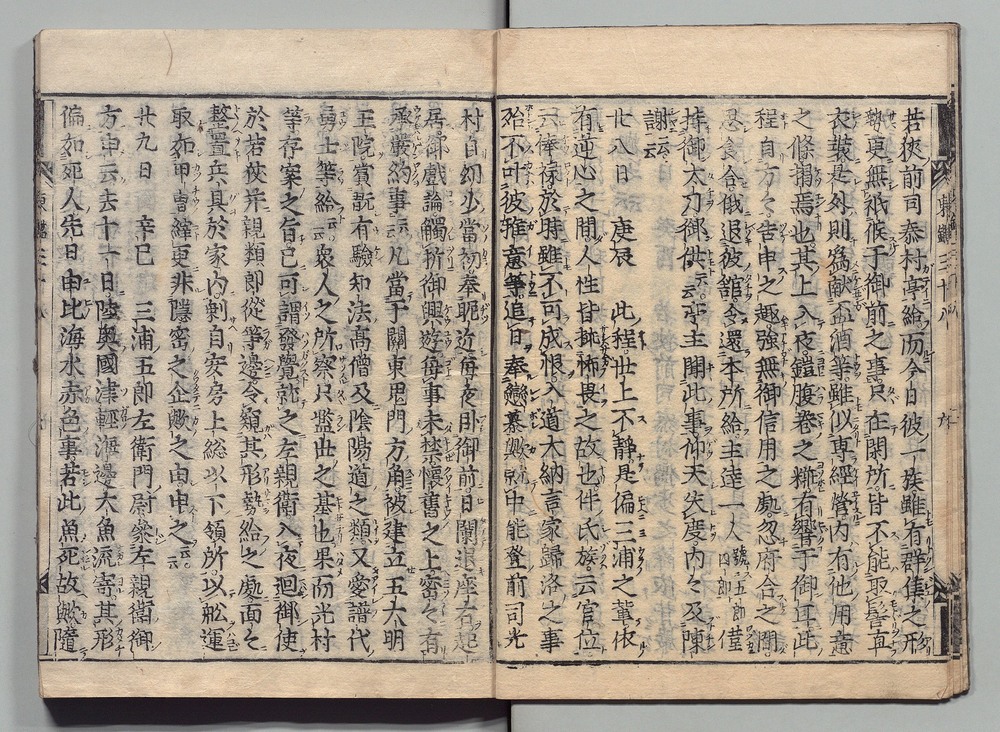 若狹前司泰村亭給而今日彼一族雖有群集之形
勢更無祗候于御前之事只在閑所皆不能取髻直
衣裝是外則爲獻盃酒等雖似專經營内有他用意
之條揭焉也其上入夜鎧腹卷之粧有響于御耳此
程自方々告申之趣強無御信用之處忽府合之間
忍食合俄退彼舘令還本所給主達一人號五郎四郎僅
持御太刀御供云々主聞此事仰天失度内々及陳
謝云云
廿八日 庚辰 此程世上不靜是偏三浦之輩依
有逆心之間人性皆挿怖畏之故也件氏族云官位
云俸祿於時雖不可成恨入道大納言家歸洛之事
殆不叶彼雅意等追日奉戀慕歟就中能登前司光
村自幼少當初奉昵近毎夜臥御前日闌退座右起
居御戲論觸折御興遊毎事未禁懷舊之上密々有
承嚴約事云云凡當于關東鬼門方角被建立五大明
王院賞翫有驗知法高僧及陰陽道之類又愛譜代
勇士等給云云衆人之所察只濫世之基也果而光村
等存案之旨已可謂發覺歟之左親衞入夜廻御使
於若狹并親類郎從等邊令窺其形勢給之處面々
整置兵具於家内剩自安房上総以下領所以舩運
取如甲冑緯更非隱密之企歟之由申之云云
廿九日 辛巳 三浦五郎左衞門尉參左親衞御
方申云去十一日陸奧國津輕海邊大魚流寄其形
偏如死人先日由比海水赤色事若此魚死故歟隨